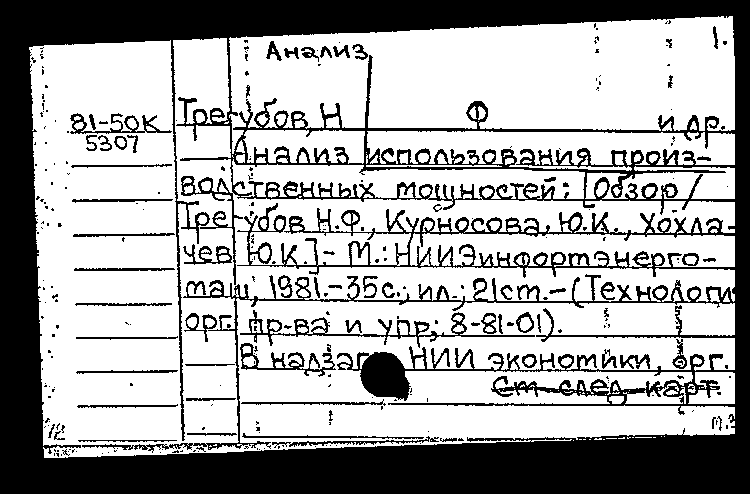 Анализ 1.
81-50К Трегубов, Н Ф и др.
5307
Анализ использования произ-
водственных мощностей: [Обзор/
Трегубов Н.Ф., Курносова, Ю.К., Хохла-
чев Ю.К.].- М.: НИИЭинформэнерго-
маш, 1981.-35с.; ил.; 21см.-(Технологи
орг. пр-ва и упр; 8-81-01).
В надзаг. НИИ экономики, орг.
См след карт.
12